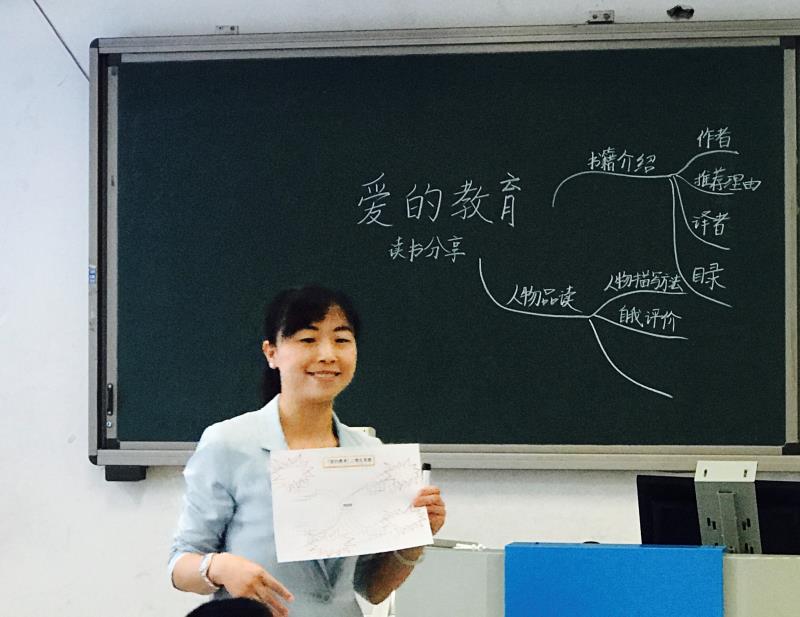 爱的教育
读书分享
书籍介绍
作者
推荐理由
译者
目录
人物品读
人物描写方法
自我评价